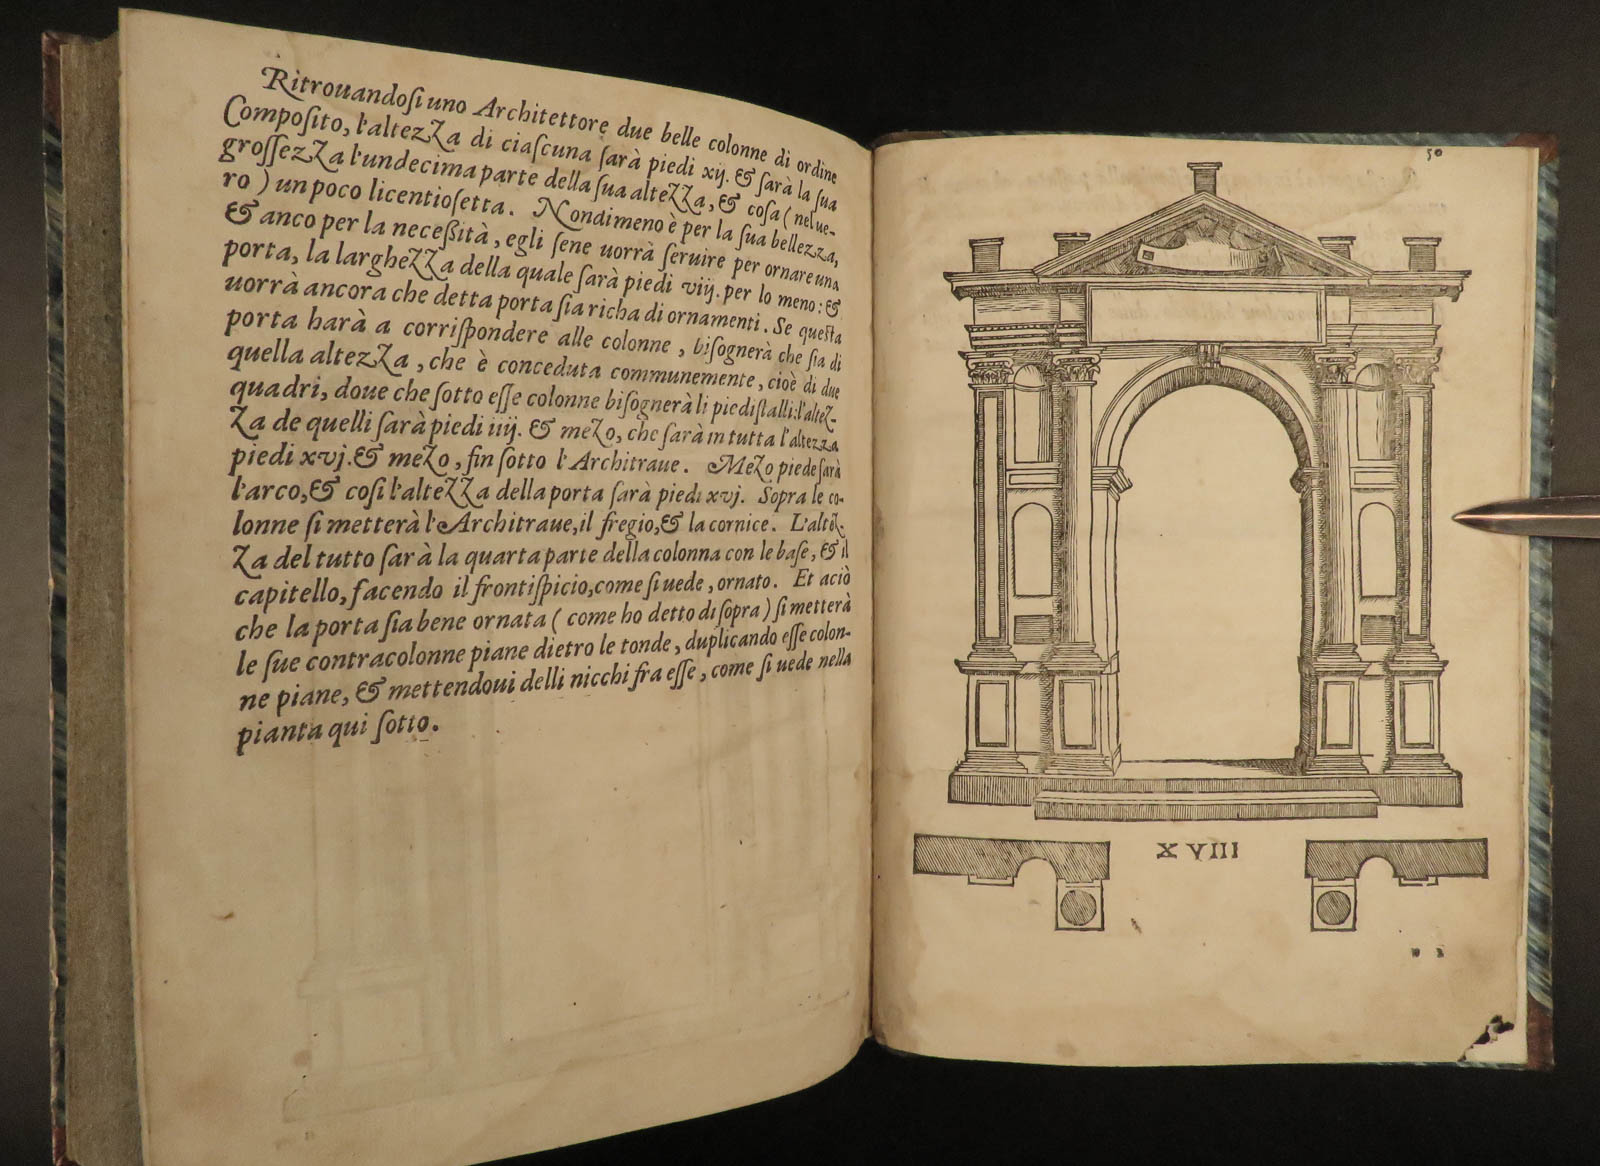 Ritrouandosi uno Architettore due belle colonne di ordine
Composito, l'altezza di ciascuna sarà piedi xij. & sarà la sua
grossezza l'undecima parte della sua altezza, & cosa (nel ue-
ro) un poco licentiosetta. Nondimeno è per la sua bellezza,
& anco per la neceßità, egli sene uorrà seruire per ornare una
porta, la larghezza della quale sarà piedi viij. per lo meno: &
uorrà ancora che detta porta sia richa di ornamenti. Se questa
porta harà a corrispondere alle colonne, bisognerà che sia di
quella altezza, che è conceduta communemente, cioè di due
quadri, doue che sotto esse colonne bisognerà li piedistalli: l'altez-
za de quelli sarà piedi iiij. & mezo, che sarà in tutta l'altezza
piedi xvj. & mezo, fin sotto l'Architraue. Mezo piede sarà
l'arco, & cosi l'altezza della porta sarà piedi xvj. Sopra le co-
lonne si metterà l'Architraue, il fregio, & la cornice. L'altez-
za del tutto sarà la quarta parte della colonna con le base, & il
capitello, facendo il frontispicio, come si uede, ornato. Et aciò
che la porta sia bene ornata (come ho detto di sopra) si metterà
le sue contracolonne piane dietro le tonde, duplicando esse colon-
ne piane, & mettendoui delli nicchi fra esse, come si uede nella
pianta qui sotto.
50
XVIII